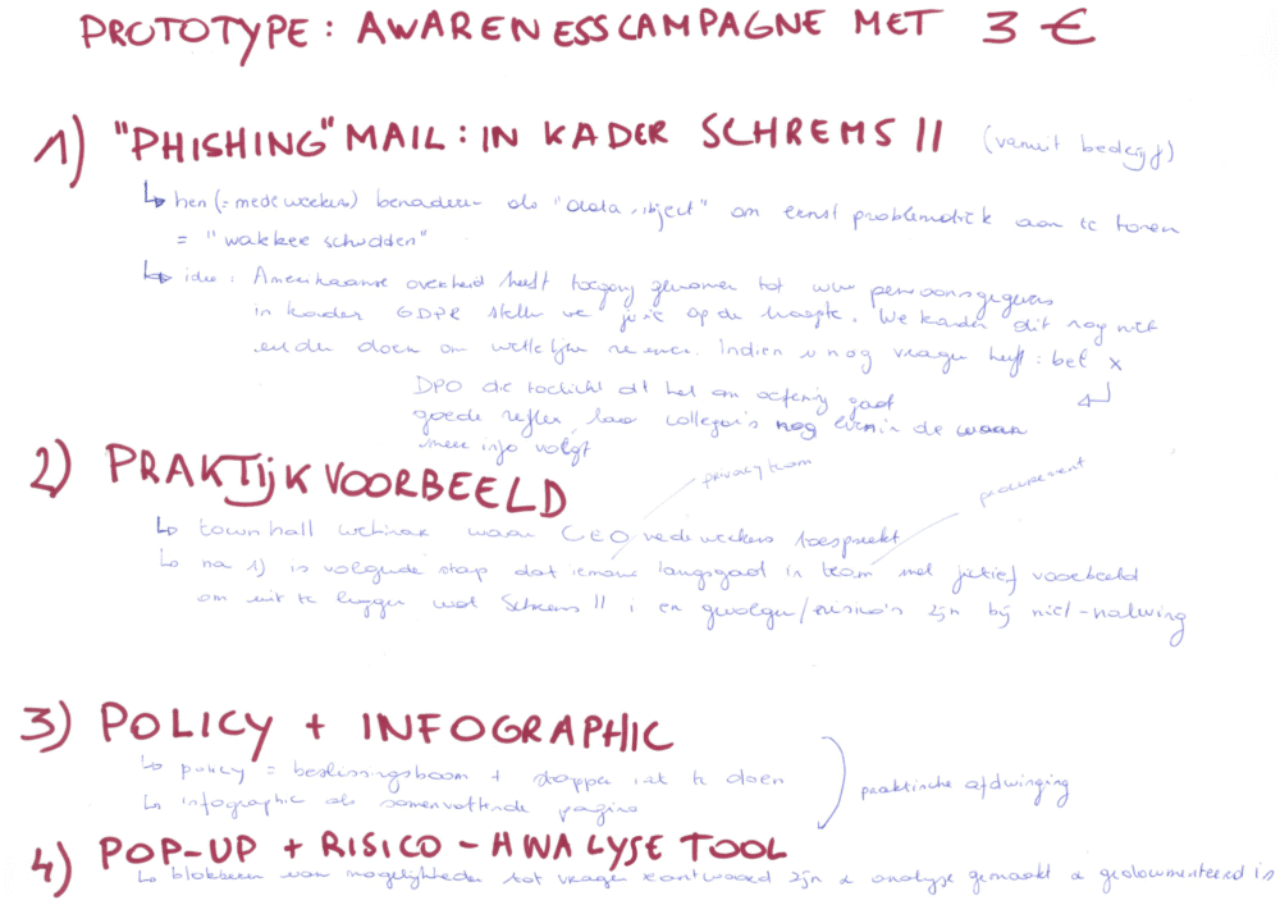 PROTOTYPE: AWARENESSCAMPAGNE MET 3 €
1) "PHISHING" MAIL: IN KADER SCHREMS II (vanuit bedrijf)
↳ hen (= medewerkers) benaderen als "data subject" om ernst problematiek aan te tonen
= "wakker schudden"
↳ idee: Amerikaanse overheid heeft toegang genomen tot uw persoonsgegevens
in kader GDPR stellen we je op de hoogte. We konden dit nog niet
eerder doen om wettelijke redenen. Indien u nog vragen heeft: bel x
DPO die toelicht dat het om oefening gaat
goede reflex, laat collega's nog even in de waan
meer info volgt
2) PRAKTIJKVOORBEELD
privacy team
procurement
↳ townhall webinar waar CEO medewerkers toespreekt
↳ na 1) is volgende stap dat iemand langsgaat in team met fictief voorbeeld
om uit te leggen wat Schrems II is en gevolgen/risico's zijn bij niet-naleving
3) POLICY + INFOGRAPHIC
↳ policy = beslissingsboom + stappen te doen
↳ infographic als samenvattende pagina
praktische afdwinging
4) POP-UP + RISICO-ANALYSE TOOL
↳ blokkeren van mogelijkheden tot vragen beantwoord zijn & analyse gemaakt & gedocumenteerd is